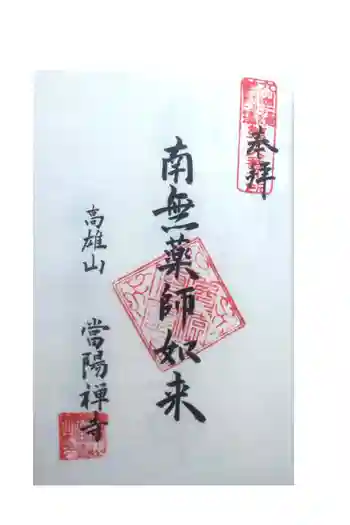 奉拝
南無薬師如来
高雄山
當陽禅寺